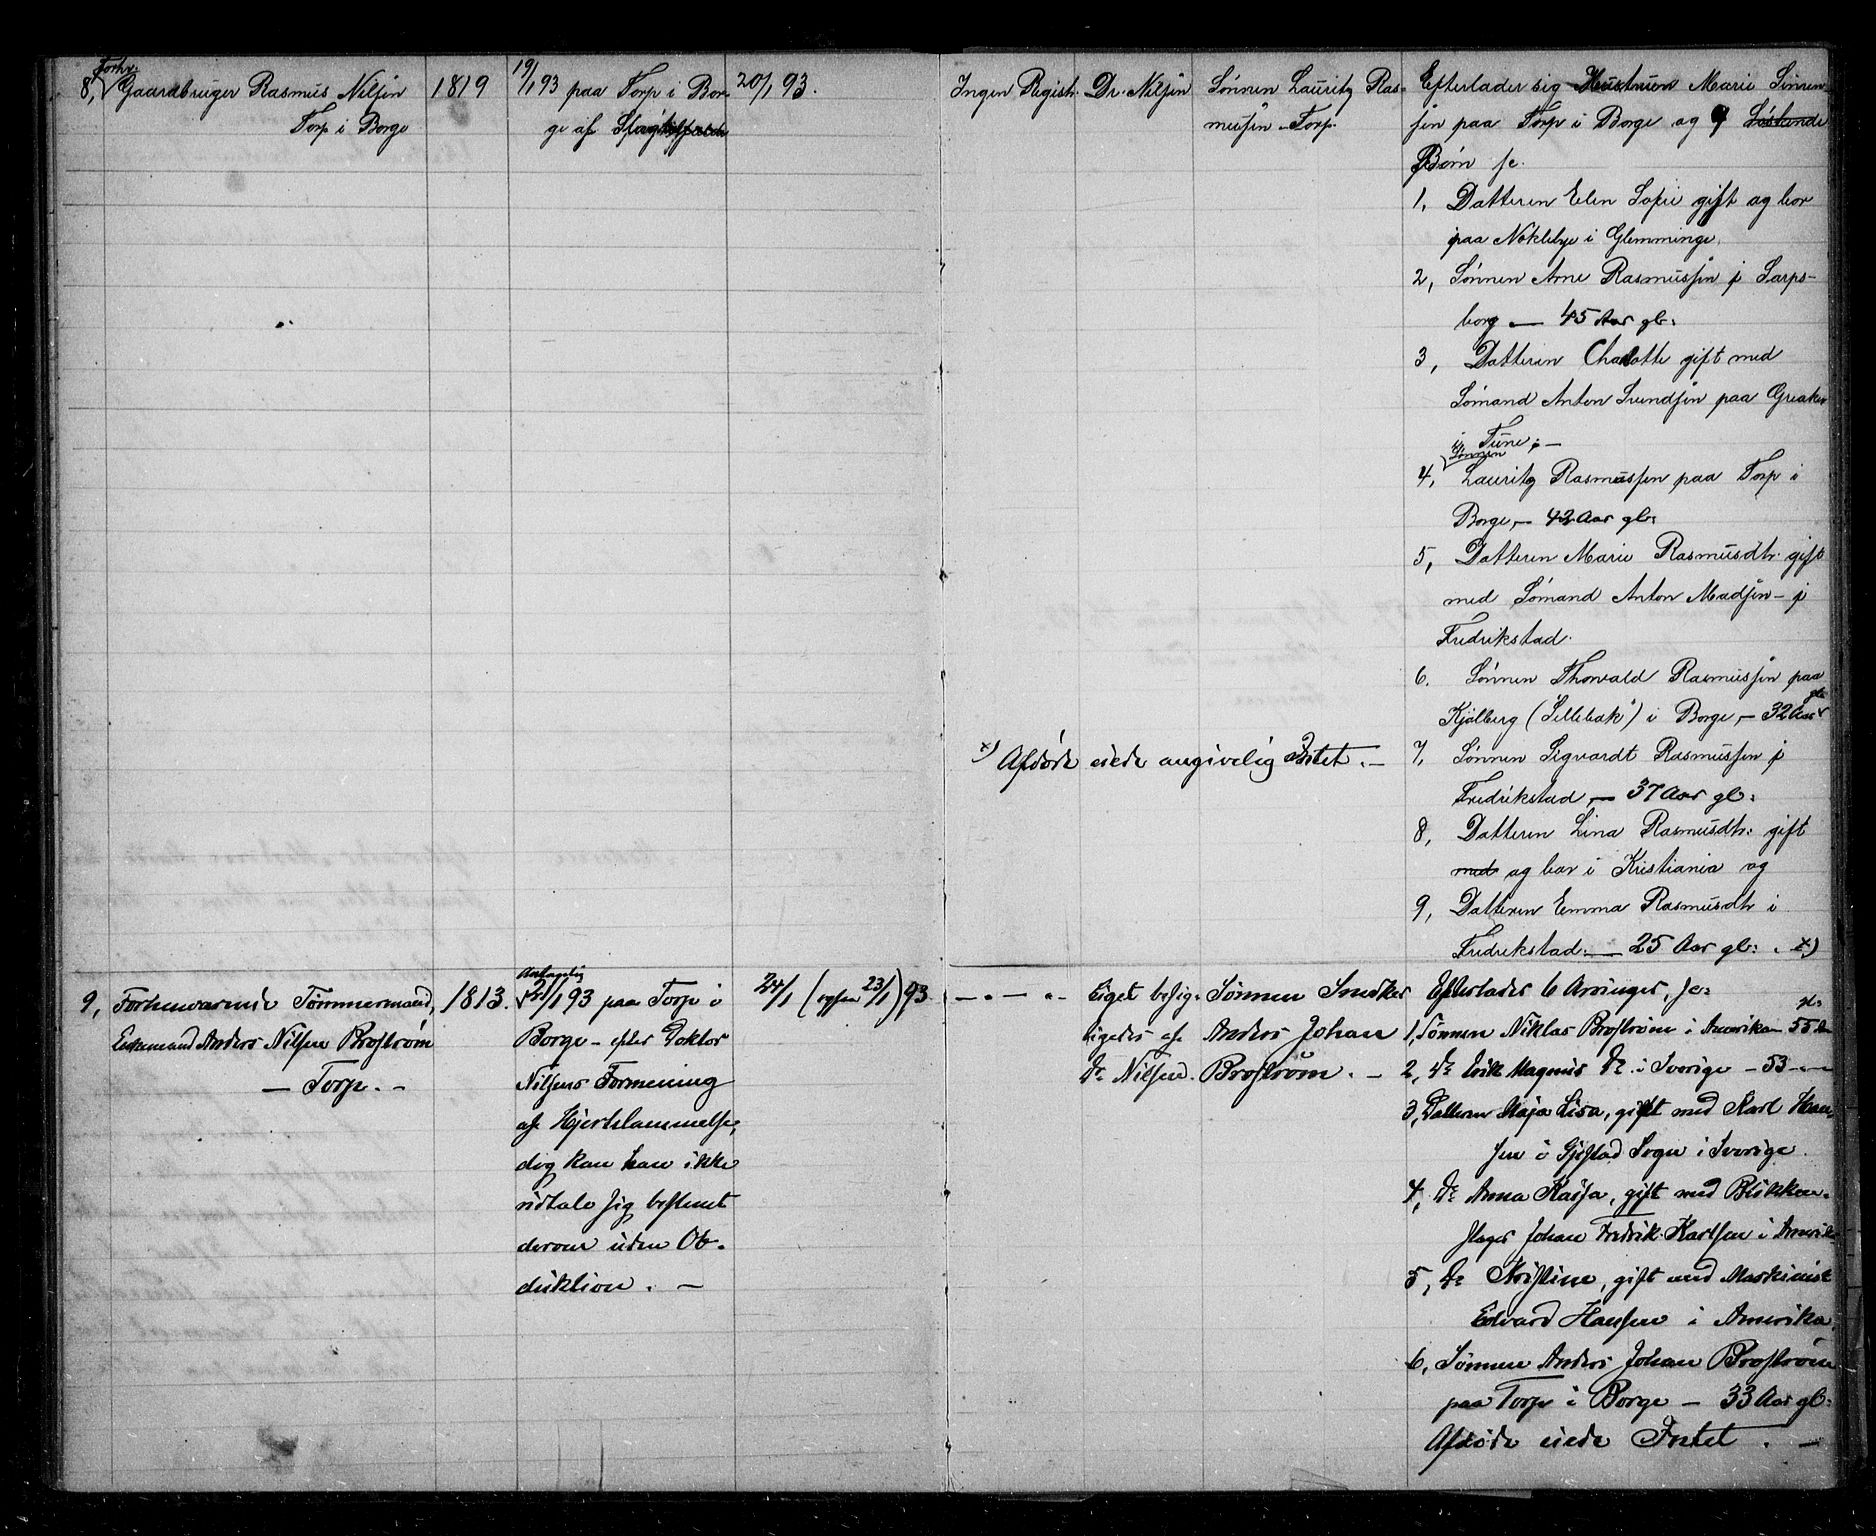 Forhv.
8, Gaardbruger Rasmus Nilsen
Torp i Borge
1819
19/1 93 paa Torp i Bor-
ge af
20/1 93.
Ingen Registr.
Dr. Nilsen
Sønnen Lauritz Ras-
mussen Torp.
Efterlader sig Hustruen Marie Simen-
sen paa Torp i Borge og 9 Søskende
Børn se.
1, Datteren Elen Sofie gift og bor
paa Noklebye i Glemminge.
2, Sønnen Arne Rasmussen i Sarps-
borg — 45 Aar gl.
3, Datteren Charlotte gift med
Sømand Anton Svendsen paa Greaker
i Tune; —
Sønnen
4, Lauritz Rasmussen paa Torp i
Borge, — 42 Aar gl.
5, Datteren Marie Rasmusdtr. gift
med Sømand Anton Madsen — i
Fredrikstad.
6. Sønnen Thorvald Rasmussen paa
Kjølberg ("Lillebæk") i Borge — 32 Aar gl.
7, Sønnen Sigvardt Rasmussen i
Fredrikstad, — 37 Aar gl.
8, Datteren Lina Rasmusdtr. gift
med og bor i Kristiania og
9, Datteren Emma Rasmusdtr i
Fredrikstad. — 25 Aar gl. x)
x) Afdøde eiede angivelig Intet. —
9, Forhenværende Tømmermand,
Enkemand Anders Nilsen Broström
— Torp. —
1813.
Antagelig
21/1 93 paa Torp i
Borge — efter Doktor
Nilsens Formening
af Hjertelammelse,
dog kan han ikke
udtale sig bestemt
derom uden Ob-
duktion. —
24/1 (ogsaa 23/1) 93
— . — . -
Liget besig-
tigedes af
Dr. Nilsen.
Sønnen Snedker
Anders Johan
Broström. —
Efterlader 6 Arvinger, se:
1, Sønnen Niklas Broström i Amerika — 55 Aar gl.
2, Do Erik Magnus Do i Sverige — 53 —
3, Datteren Maja Lisa, gift med Karl Han-
sen i Sogn i Sverige.
4, Do Anna Kaisa, gift med Blikken-
slager Johan Fredrik Karlsen i Amerika
5, Do Kristine, gift med Maskinist
Edvard Hansen i Amerika.
6, Sønnen Anders Johan Broström
paa Torp i Borge — 33 Aar gl.
Afdøde eiede Intet. —